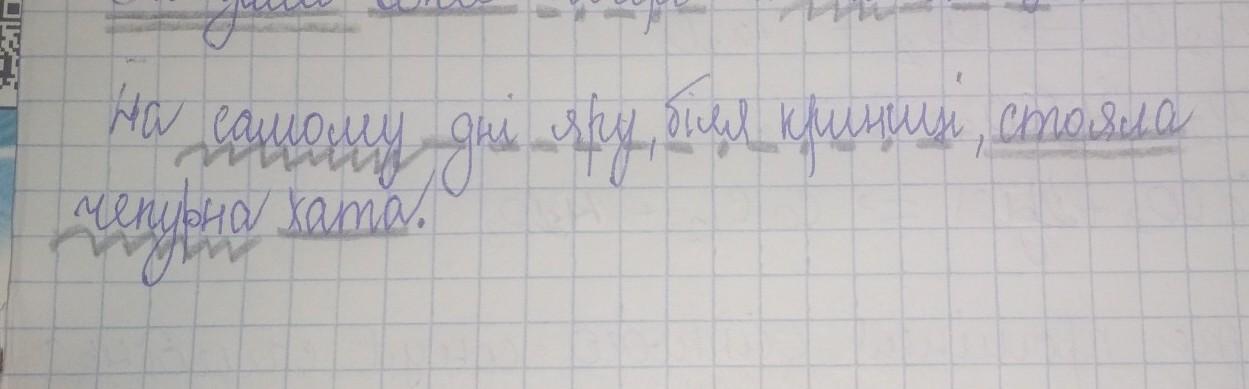 На самому дні яру, біля криниці, стояла
чепурна хата.